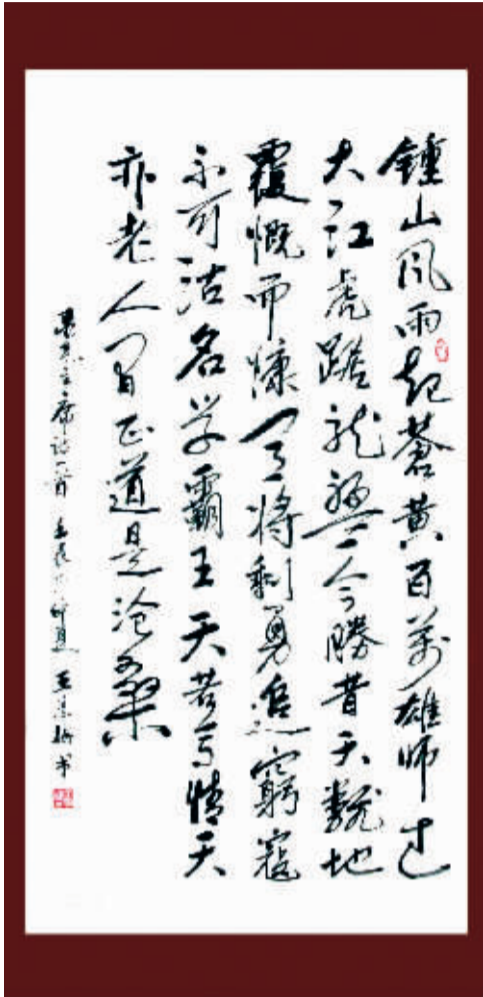 鍾山风雨起蒼黄百萬雄师过
大江虎踞龙盤今勝昔天翻地
覆慨而慷宜将剩勇追窮寇
不可沽名学霸王天若有情天
亦老人间正道是沧桑
主席诗一首 王书